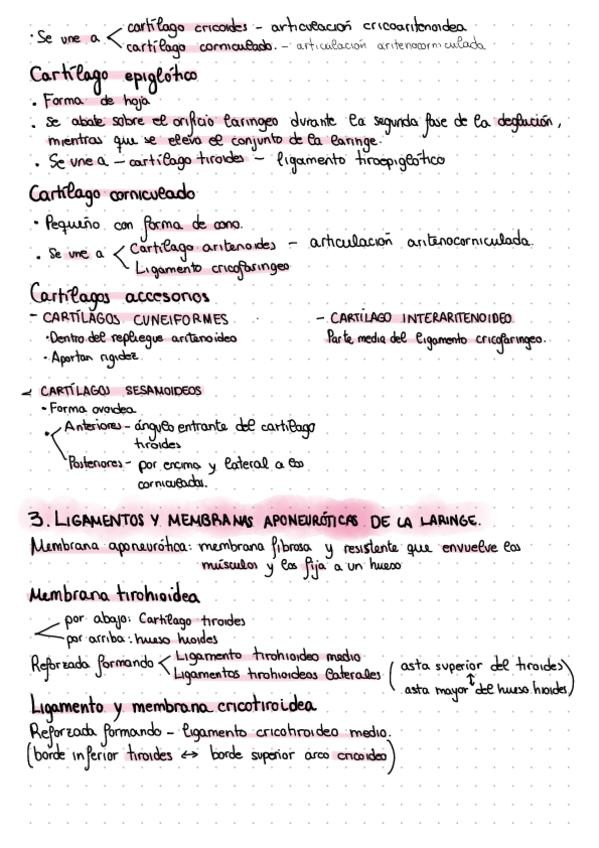 · Se une a < cartílago cricoides - articulación cricoaritenoidea
cartílago corniculado. - articulación aritenocorniculada
Cartílago epiglótico
· Forma de hoja
· se abate sobre el orificio laríngeo durante la segunda fase de la deglución,
mientras que se eleva el conjunto de la laringe.
· Se une a - cartílago tiroides - ligamento tiroepiglótico
Cartílago corniculado
· Pequeño con forma de cono.
· se une a < Cartílago aritenoides - articulación aritenocorniculada.
Ligamento cricofaringeo
Cartílagos accesorios
- CARTÍLAGOS CUNEIFORMES
· Dentro del repliegue aritenoideo
· Aportan rigidez
- CARTÍLAGO INTERARITENOIDEO
Parte media del ligamento cricofaringeo.
- CARTÍLAGOS SESAMOIDEOS
· Forma ovoidea
· < Anteriores - ángulo entrante del cartílago
tiroides
Posteriores - por encima y lateral a los
corniculados.
3. LIGAMENTOS Y MEMBRANAS APONEURÓTICAS DE LA LARINGE.
Membrana aponeurótica: membrana fibrosa y resistente que envuelve los
músculos y los fija a un hueso
Membrana tirohioidea
< por abajo: Cartílago tiroides
por arriba: hueso hioides
Reforzada formando < Ligamento tirohioideo medio
Ligamentos tirohioideos laterales (asta superior del tiroides
↕
asta mayor del hueso hioides)
Ligamento y membrana cricotiroidea
Reforzada formando - ligamento cricotiroideo medio.
(borde inferior tiroides ↔ borde superior arco cricoideo)